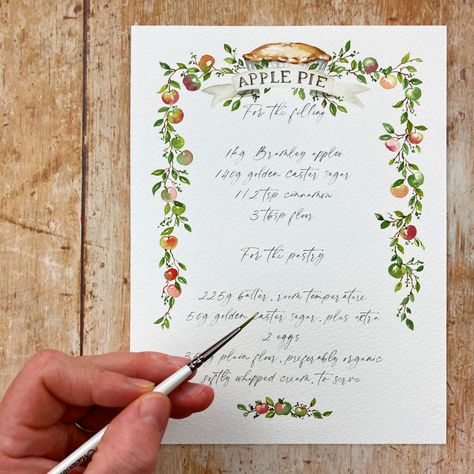 APPLE PIE
For the filling
1kg Bramley apples
140g golden caster sugar
1 1/2 tsp cinnamon
3 tbsp floor
For the pastry
225g butter, room temperature
50g golden caster sugar, plus extra
2 eggs
plain floor, preferably organic
softly whipped cream, to serve